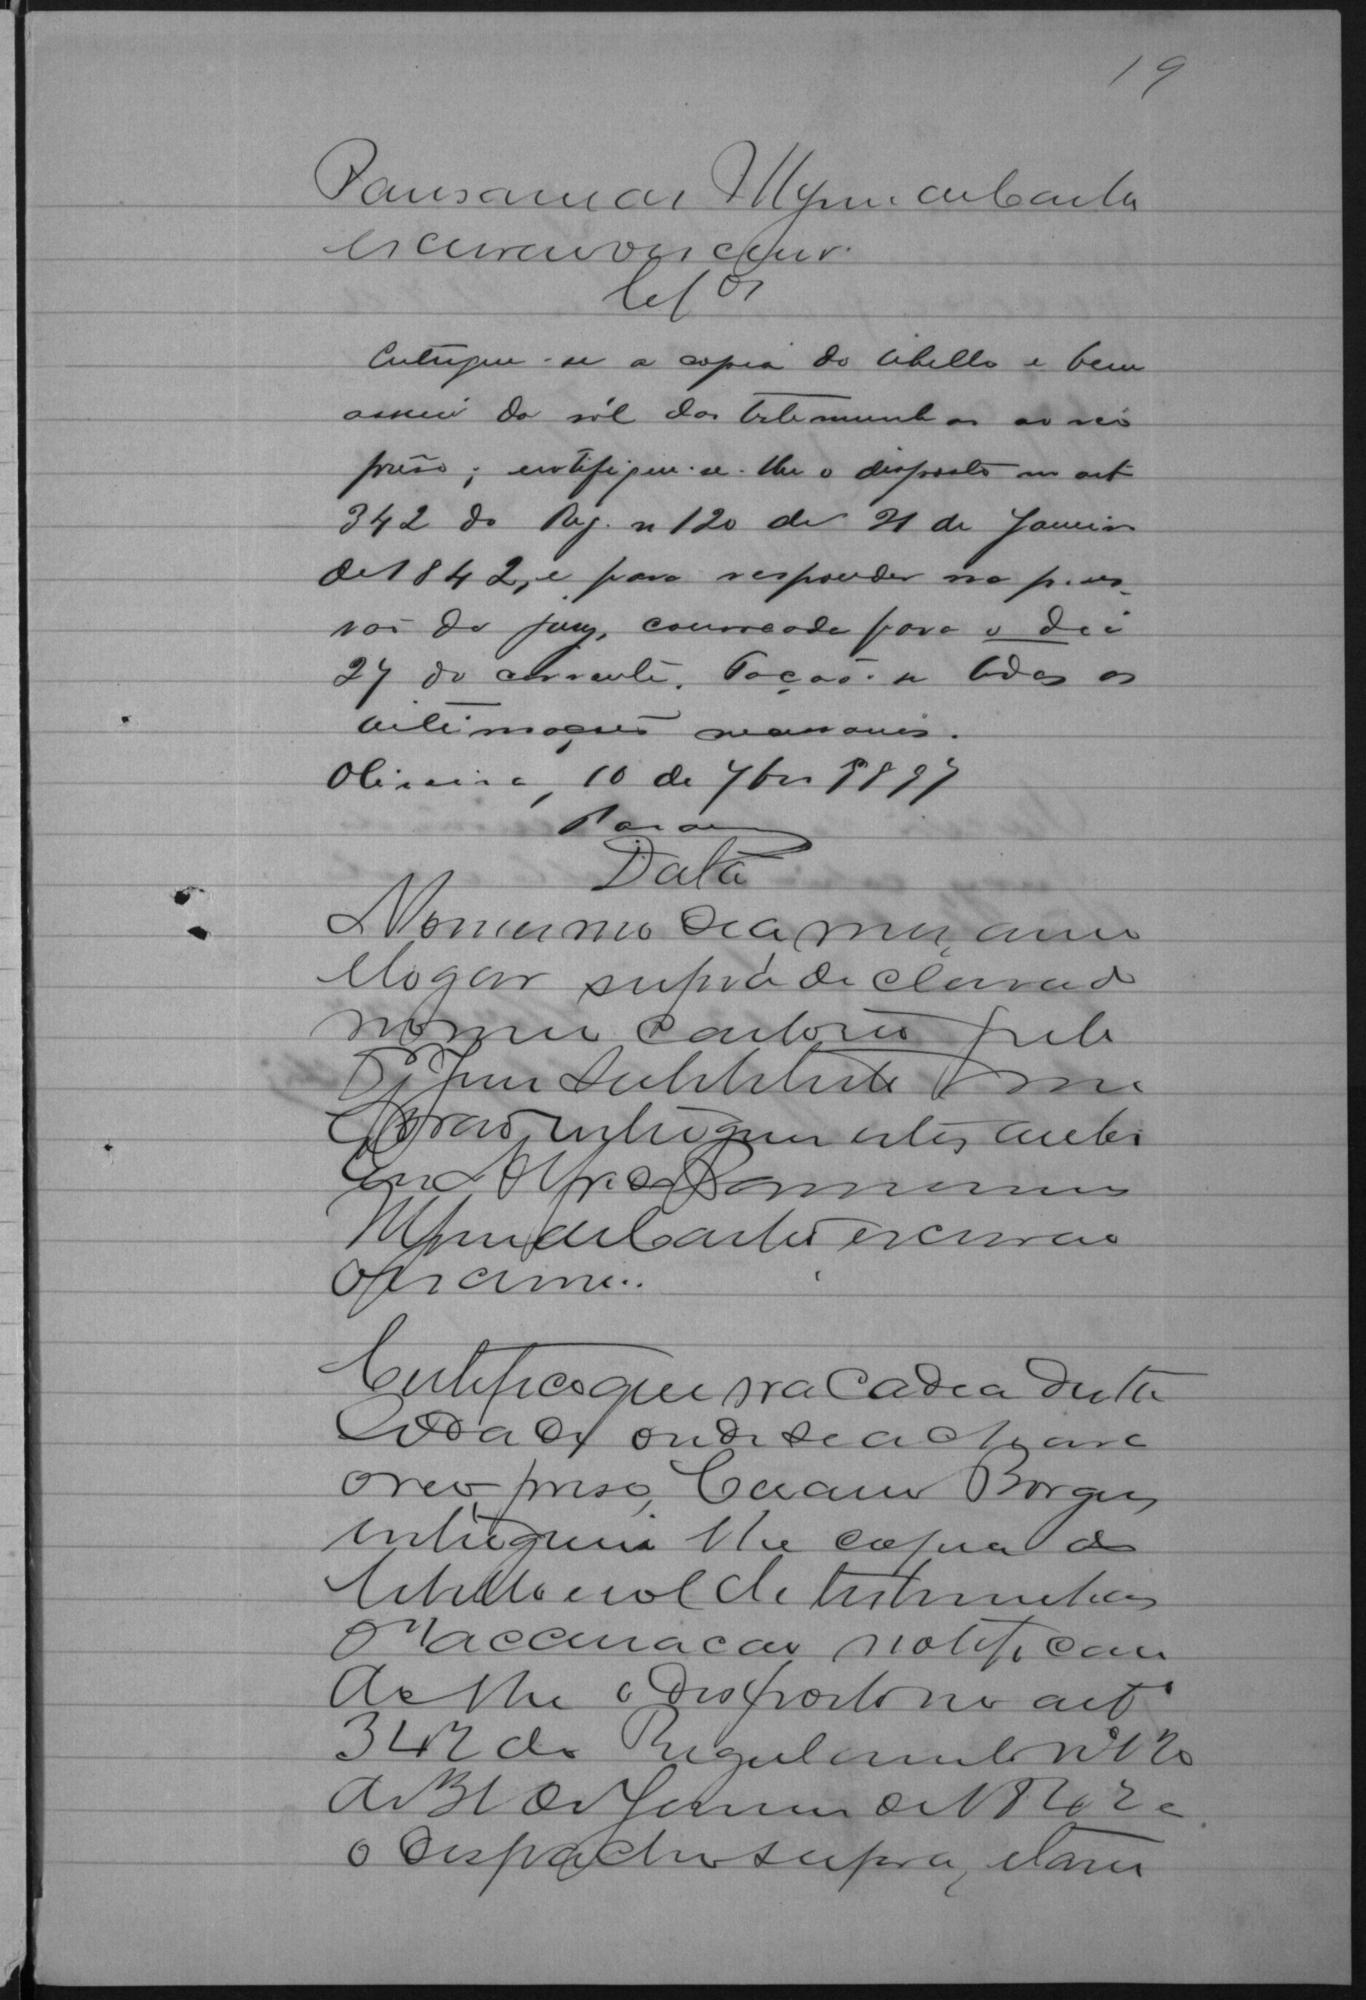 19
escrivão escrevi.
Cls.os
Entregue-se a copia do libello e bem
assim do ról das testemunhas ao réo
prêso; notifique-se-lhe o disposto no art
342 do Reg. n 120 de 31 de Janeiro
de 1842, e para responder na p. ses
são do jury, convocada para o dia
27 do corrente. Fação-se todas as
intimações necessarias.
Oliveira, 10 de 7bro 1897
Data
No mesmo dia, mez, anno
e logar supra declarado
no meu cartorio pelo
Juiz Substituto
entregues estes autos
Eu
escrivão
o escrevi.
Certifico que na Cadea desta
Cidade onde se achava
o reo preso, Borges,
entreguei lhe copia do
libello e rol de testemunhas
da accusacao notifican
do lhe o disposto no art
342 do Regulamento nº 120
de 31 de Janeiro de 1842 e
o despacho supra,